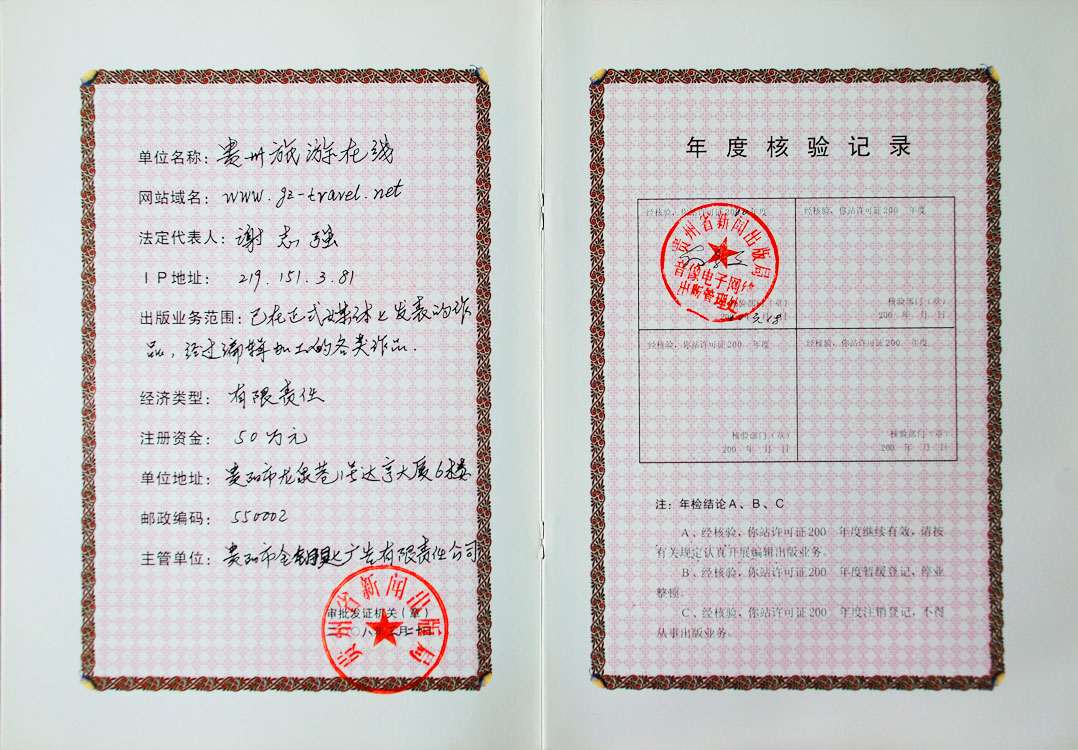 单位名称：贵州旅游在线
网站域名：www.gz-travel.net
法定代表人：谢志强
IP地址：219.151.3.81
出版业务范围：已在正式媒体上发表的作
品，经过编辑加工的各类作品.
经济类型：有限责任
注册资金：50万元
单位地址：贵阳市龙泉巷1号达亨大厦6楼
邮政编码：550002
主管单位：贵阳市金钥匙广告有限责任公司
审批发证机关（章）
〇八年二月二十日
贵州省新闻出版局
年度核验记录
经核验，你站许可证20 年度
经核验，你站许可证200 年度
贵州省新闻出版局
音像电子网络
出版管理处
（章）
核验部门（章）
200 年 月 日
经核验，你站许可证200 年度
经核验，你站许可证200 年度
核验部门（章）
核验部门（章）
200 年 月 日
200 年 月 日
注：年检结论A、B、C
A、经核验，你站许可证200 年度继续有效，请按
有关规定认真开展编辑出版业务。
B、经核验，你站许可证200 年度暂缓登记，停业
整顿。
C、经核验，你站许可证200 年度注销登记，不得
从事出版业务。